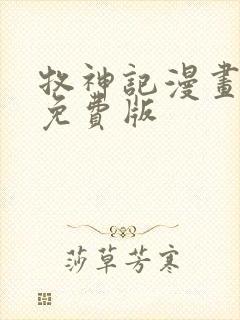 牧神記漫畫
免費版
莎草芳寒